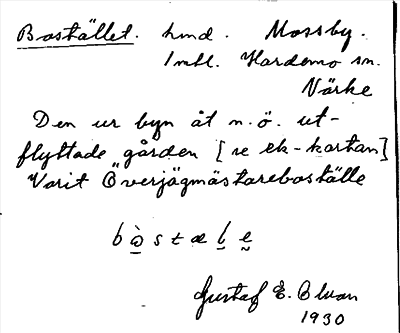 Bostället. hmd. Mossby.
Intl. Hardemo sn.
Närke
Den ur byn åt n.ö. ut-
flyttade gården [se ek-kartan]
Varit Överjägmästareboställe
Gustaf E. Olvan
1930